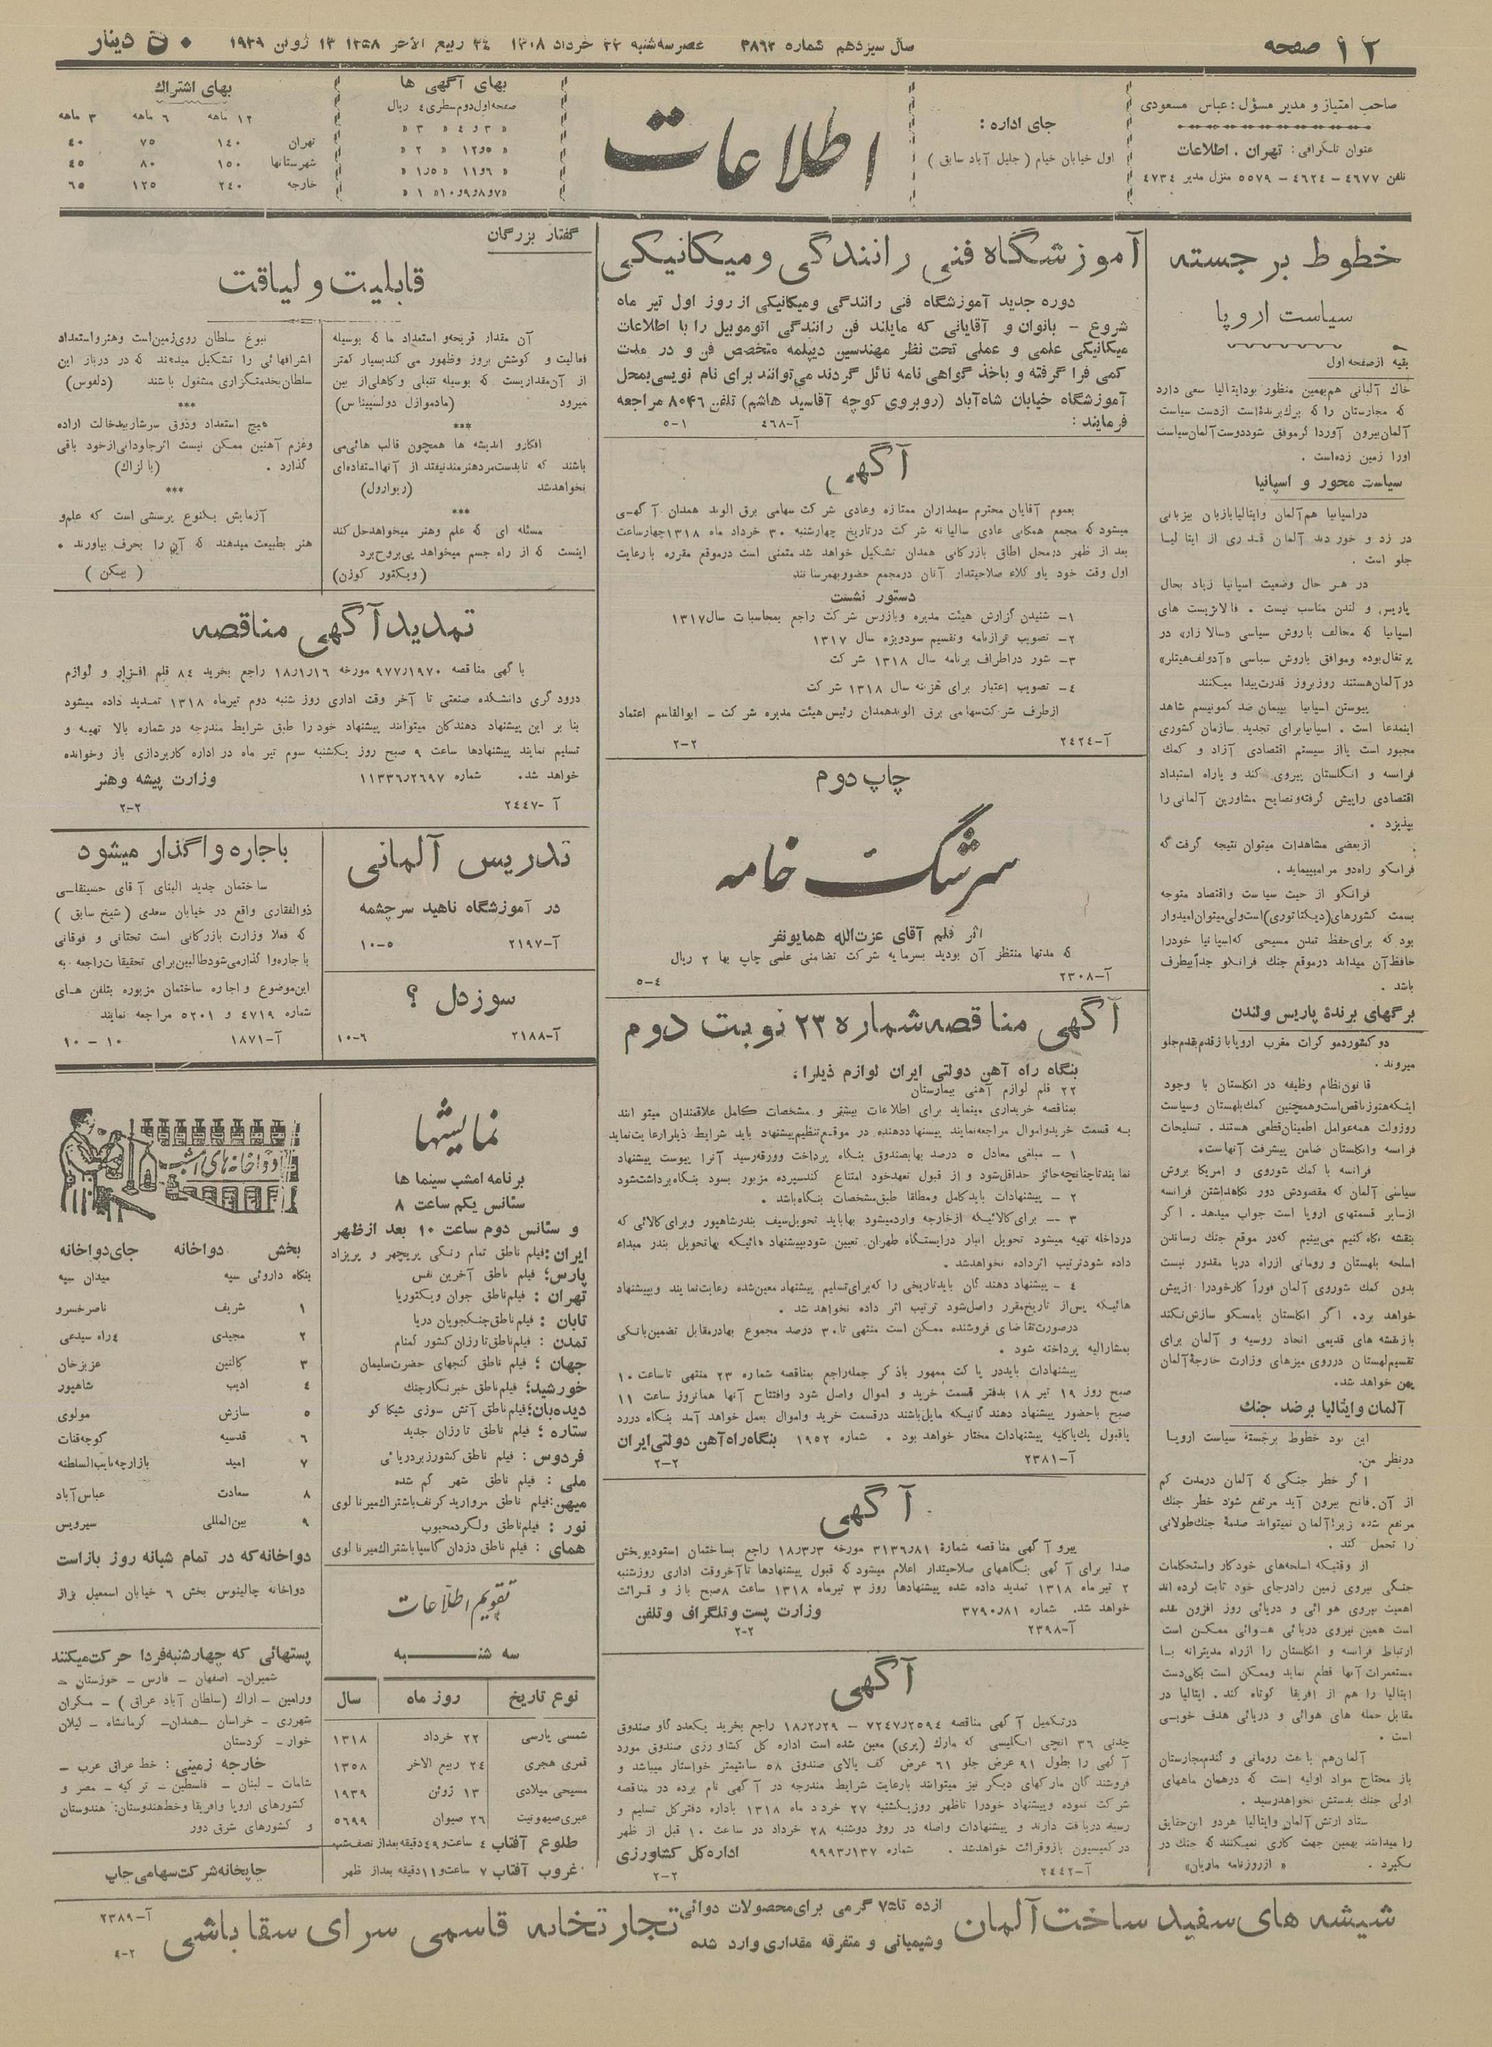 ۱۲ صفحه
سال سیزدهم شماره ۳۸۶۲
عصر سه شنبه ۲۲ خرداد ۱۳۰۸ ۲۴ ربیع الاخر ۱۳۵۸ ۱۳ ژوئن ۱۹۳۹
۵۰ دینار
صاحب امتیاز و مدیر مسؤل : عباس مسعودی
عنوان تلگرافی : تهران . اطلاعات
تلفن ۴۶۷۷ – ۴۶۲۴ – ۵۵۷۹ منزل مدیر ۴۷۳۴
جای اداره :
اول خیابان خیام ( جلیل آباد سابق )
اطلاعات
بهای آگهی ها
صفحه اول دوم سطری ۴ ریال
بهای اشتراك
۱۲ ماهه ۶ ماهه ۳ ماهه
تهران ۱۴۰ ۷۵ ۴۰
شهرستانها ۱۵۰ ۸۰ ۴۵
خارجه ۲۴۰ ۱۲۵ ۶۵
خطوط برجسته
سیاست اروپا
بقیه از صفحه اول
خاك آلبانی هم بهمین منظور بود ایتالیا سعی دارد
که مجارستان را که برك برنده است از دست سیاست
آلمان بیرون آورد اگر موفق شود دست آلمان سیاست
اورا زمین زده است .
سیاست محور و اسپانیا
در اسپانیا هم آلمان و ایتالیا بازبان بیزبانی
در زد و خورد ند آلمان قدری از ایتا لیا
جلو است .
در هر حال وضعیت اسپانیا زیاد بحال
پاریس و لندن مناسب نیست . فالانژیست های
اسپانیا که مخالف با روش سیاسی «سالازار» در
پرتغال بوده و موافق با روش سیاسی «آدولف هیتلر»
در آلمان هستند روز بروز قدرت پیدا میکنند
پیوستن اسپانیا بپیمان ضد کمونیسم شاهد
اینمدعا است . اسپانیا برای تجدید سازمان کشوری
مجبور است یا از سیستم اقتصادی آزاد و کمك
فرانسه و انگلستان پیروی کند و یا راه استبداد
اقتصادی را پیش گرفته و نصایح مشاورین آلمانی را
بپذیرد .
از بعضی مشاهدات میتوان نتیجه گرفت که
فرانکو راه دو م را میپیماید .
فرانکو از حیث سیاست و اقتصاد متوجه
بسمت کشورهای (دیکتاتوری) است ولی میتوان امیدوار
بود که برای حفظ تمدن مسیحی که اسپانیا خود را
حافظ آن میداند در موقع جنك فرانکو جداً بیطرف
باشد .
برگهای برندهٔ پاریس و لندن
دو کشور دموکرات مغرب اروپا باز قدم بقدم جلو
میروند .
قانون نظام وظیفه در انگلستان با وجود
اینکه هنوز ناقص است و همچنین کمك بلهستان و سیاست
روزولت همه عوامل اطمینان قطعی هستند . تسلیحات
فرانسه و انگلستان ضامن پیشرفت آنهاست .
فرانسه با کمك شوروی و امریکا بروش
سیاسی آلمان که مقصودش دور نگاهداشتن فرانسه
از سایر قسمتهای اروپا است جواب میدهد . اگر
بنقشه نگاه کنیم می بینیم که در موقع جنك رساندن
اسلحه بلهستان و رومانی از راه دریا مقدور نیست
بدون کمك شوروی آلمان فوراً کار خود را از پیش
خواهد برد . اگر انگلستان با مسکو سازش نکند
باز نقشه های قدیمی اتحاد روسیه و آلمان برای
تقسیم لهستان در روی میزهای وزارت خارجهٔ آلمان
پهن خواهد شد .
آلمان و ایتالیا بر ضد جنك
این بود خطوط برجستهٔ سیاست اروپا
در نظر من .
اگر خطر جنگی که آلمان در مدت کم
از آن فاتح بیرون آید مرتفع شود خطر جنك
مرتفع شده زیرا آلمان نمیتواند صدمهٔ جنك طولانی
را تحمل کند .
از وقتیکه اسلحه های خودکار و استحکامات
جنگی نیروی زمین را در جای خود ثابت کرده اند
اهمیت نیروی هوائی و دریائی روز افزون شده
است همین نیروی دریائی هوائی ممکن است
ارتباط فرانسه و انگلستان را از راه مدیترانه با
مستعمرات آنها قطع نماید و ممکن است بکلی دست
ایتالیا را هم از افریقا کوتاه کند . ایتالیا در
مقابل حمله های هوائی و دریائی هدف خوبی
است .
آلمان هم با نفت رومانی و گندم مجارستان
باز محتاج مواد اولیه است که در همان ماههای
اولی جنك بدستش نخواهد رسید .
ستاد ارتش آلمان و ایتالیا هر دو این حقایق
را میدانند بهمین جهت کاری نمیکنند که جنك در
بگیرد . « از روزنامه ماریان »
آموزشگاه فنی رانندگی و میکانیکی
دوره جدید آموزشگاه فنی رانندگی و میکانیکی از روز اول تیر ماه
شروع – بانوان و آقایانی که مایلند فن رانندگی اتوموبیل را با اطلاعات
میکانیکی علمی و عملی تحت نظر مهندسین دیپلمه متخصص فن و در مدت
کمی فرا گرفته و باخذ گواهی نامه نائل گردند می‌توانند برای نام نویسی بمحل
آموزشگاه خیابان شاه‌آباد (روبروی کوچه آقاسید هاشم) تلفن ۸۰۴۶ مراجعه
فرمایند : آ-۴۶۸ ۱-۵
آگهی
بعموم آقایان محترم سهمداران ممتازه و عادی شرکت سهامی برق الوند همدان آگهی
میشود که مجمع همگانی عادی سالیانه شرکت در تاریخ چهارشنبه ۳۰ خرداد ماه ۱۳۱۸ چهار ساعت
بعد از ظهر در محل اطاق بازرگانی همدان تشکیل خواهد شد متمنی است در موقع مقرره با رعایت
اول وقت خود یا وکلاء صلاحیتدار آنان در مجمع حضور بهمرسانند
دستور نشست
۱- شنیدن گزارش هیئت مدیره و بازرس شرکت راجع بمحاسبات سال ۱۳۱۷
۲- تصویب ترازنامه و تقسیم سود ویژه سال ۱۳۱۷
۳- شور در اطراف برنامه سال ۱۳۱۸ شرکت
۴- تصویب اعتبار برای هزینه سال ۱۳۱۸ شرکت
از طرف شرکت سهامی برق الوند همدان رئیس هیئت مدیره شرکت – ابوالقاسم اعتماد
آ-۲۴۲۴ ۲-۲
چاپ دوم
سرشگ خامه
اثر قلم آقای عزت‌الله همایونفر
که مدتها منتظر آن بودید بسرمایه شرکت تضامنی علمی چاپ بها ۲ ریال
آ-۲۳۰۸ ۴-۵
آگهی مناقصه شماره ۲۳ نوبت دوم
بنگاه راه آهن دولتی ایران لوازم ذیلرا .
۲۲ قلم لوازم آهنی بیمارستان
بمناقصه خریداری مینماید برای اطلاعات بیشتر و مشخصات کامل علاقمندان میتوانند
به قسمت خرید و اموال مراجعه نمایند پیشنهاد دهنده در موقع تنظیم پیشنهاد باید شرایط ذیل را رعایت نماید
۱ – مبلغی معادل ۵ درصد بها بصندوق بنگاه پرداخت و ورقه رسید آنرا پیوست پیشنهاد
نمایند تا چنانچه حائز حداقل شود و از قبول تعهد خود امتناع کند سپرده مزبور بسود بنگاه برداشت شود
۲ – پیشنهادات باید کامل و مطلقا طبق مشخصات بنگاه باشد .
۳ – برای کالائیکه از خارجه وارد میشود بها باید تحویل سیف بندر شاهپور و برای کالائی که
در داخله تهیه میشود تحویل انبار در ایستگاه طهران تعیین شود پیشنهاد هائیکه بها تحویل بندر میداء
داده شود ترتیب اثر داده نخواهد شد .
۴ – پیشنهاد دهندگان باید تاریخی را که برای تسلیم پیشنهاد معین شده رعایت نمایند و پیشنهاد
هائیکه پس از تاریخ مقرر واصل شود ترتیب اثر داده نخواهد شد .
در صورت تقاضای فروشنده ممکن است منتهی تا ۳۰ درصد مجموع بها در مقابل تضمین بانکی
بمشارالیه پرداخته شود .
پیشنهادات باید در پاکت ممهور با ذکر جمله راجع بمناقصه شماره ۲۳ منتهی تا ساعت ۱۰
صبح روز ۱۹ تیر ۱۸ بدفتر قسمت خرید و اموال واصل شود و افتتاح آنها همانروز ساعت ۱۱
صبح با حضور پیشنهاد دهندگانیکه مایل باشند در قسمت خرید و اموال بعمل خواهد آمد بنگاه در رد
یا قبول یك یا کلیه پیشنهادات مختار خواهد بود . شماره ۱۹۵۲ بنگاه راه آهن دولتی ایران
آ-۲۳۸۱ ۲-۲
آگهی
پیرو آگهی مناقصه شمارهٔ ۳۱۳۶٫۸۱ مورخه ۱۸٫۳٫۳ راجع بساختمان استودیو پخش
صدا برای آگهی بنگاههای صلاحیتدار اعلام میشود که قبول پیشنهادها تا آخر وقت اداری روز شنبه
۲ تیر ماه ۱۳۱۸ تمدید داده شده پیشنهادها روز ۳ تیر ماه ۱۳۱۸ ساعت ۸ صبح باز و قرائت
خواهد شد. شماره ۳۷۹۰٫۸۱ وزارت پست و تلگراف و تلفن
آ-۲۳۹۸ ۲-۲
آگهی
در تکمیل آگهی مناقصه ۷۲۴۷٫۲۵۹۴ – ۱۸٫۲٫۲۹ راجع بخرید یکعدد گاو صندوق
چدنی ۳۶ انچی انگلیسی که مارك (پری) معین شده است اداره کل کشاورزی صندوق مورد
آگهی را بطول ۹۱ عرض جلو ۶۱ عرض کف بالای صندوق ۵۸ سانتیمتر خواستار میباشد و
فروشندگان مارکهای دیگر نیز میتوانند با رعایت شرایط مندرجه در آگهی نام برده در مناقصه
شرکت نموده و پیشنهاد خود را تا ظهر روز یکشنبه ۲۷ خرداد ماه ۱۳۱۸ باداره دفتر کل تسلیم و
رسید دریافت دارند و پیشنهادات واصله در روز دوشنبه ۲۸ خرداد در ساعت ۱۰ قبل از ظهر
در کمیسیون باز و قرائت خواهد شد . شماره ۹۹۹۳٫۱۳۷ اداره کل کشاورزی
آ-۲۴۴۲ ۲-۲
گفتار بزرگان
قابلیت و لیاقت
آن مقدار قریحه و استعداد ما که بوسیله
فعالیت و کوشش بروز و ظهور می کند بسیار کمتر
از آن مقداریست که بوسیله تنبلی و کاهلی از بین
میرود (مادموازل دولسپیناس)
***
افکار و اندیشه ها همچون قالب هائی می
باشند که تا بدست مرد هنرمند نیفتد از آنها استفاده‌ای
نخواهد شد (ریوارول)
***
مسئله ای که علم و هنر میخواهد حل کند
اینست که از راه جسم میخواهد پی بروح برد
(ویکتور کوزن)
نبوغ سلطان روی زمین است و هنر و استعداد
اشرافهائی را تشکیل میدهند که در دربار این
سلطان بخدمتگزاری مشغول باشند (دلفوس)
***
هیچ استعداد و ذوق سرشار بی دخالت اراده
و عزم آهنین ممکن نیست اثر جاودانی از خود باقی
گذارد . (بالزاك)
***
آزمایش یکنوع پرسشی است که علم و
هنر بطبیعت میدهند که آن را بحرف بیاورند .
( بیکن )
تمدید آگهی مناقصه
با گهی مناقصه ۹۷۷٫۱۹۷۰ مورخه ۱۸٫۱٫۱۶ راجع بخرید ۸۴ قلم افزار و لوازم
درودگری دانشکده صنعتی تا آخر وقت اداری روز شنبه دوم تیرماه ۱۳۱۸ تمدید داده میشود
بنا بر این پیشنهاد دهندگان میتوانند پیشنهاد خود را طبق شرایط مندرجه در شماره بالا تهیه و
تسلیم نمایند پیشنهادها ساعت ۹ صبح روز یکشنبه سوم تیر ماه در اداره کارپردازی باز و خوانده
خواهد شد . شماره ۱۱۳۳۶٫۲۶۹۷ وزارت پیشه و هنر
آ-۲۴۴۷ ۲-۲
تدریس آلمانی
در آموزشگاه ناهید سرچشمه
آ-۲۱۹۷ ۵-۱۰
سوزدل ؟
آ-۲۱۸۸ ۶-۱۰
باجاره واگذار میشود
ساختمان جدید البنای آقای حسینقلی
ذوالفقاری واقع در خیابان سعدی (شیخ سابق)
که فعلا وزارت بازرگانی است تحتانی و فوقانی
باجاره واگذار می‌شود طالبین برای تحقیقات راجعه به
این موضوع و اجاره ساختمان مزبوره بتلفن های
شماره ۴۷۱۹ و ۵۲۰۱ مراجعه نمایند
آ-۱۸۷۱ ۱۰ – ۱۰
نمایشها
برنامه امشب سینما ها
سئانس یکم ساعت ۸
و سئانس دوم ساعت ۱۰ بعد از ظهر
ایران : فیلم ناطق تمام رنگی پریچهر و پریزاد
پارس : فیلم ناطق آخرین نفس
تهران : فیلم ناطق جوان ویکتوریا
تابان : فیلم ناطق جنگجویان دریا
تمدن : فیلم ناطق تارزان کشور گمنام
جهان : فیلم ناطق گنجهای حضرت سلیمان
خورشید : فیلم ناطق خبرنگار جنك
دیده‌بان : فیلم ناطق آتش سوزی شیکاگو
ستاره : فیلم ناطق تارزان جدید
فردوس : فیلم ناطق کشور زیر دریائی
ملی : فیلم ناطق شهر گم شده
میهن : فیلم ناطق مروارید کرنف باشتراك میرنا لوی
نور : فیلم ناطق ولگرد محبوب
همای : فیلم ناطق دزدان کاسپا باشتراك میرنا لوی
تقویم اطلاعات
سه شنبه
نوع تاریخ روز ماه سال
شمسی پارسی ۲۲ خرداد ۱۳۱۸
قمری هجری ۲۴ ربیع الاخر ۱۳۵۸
مسیحی میلادی ۱۳ ژوئن ۱۹۳۹
عبری صیهونیت ۲۶ صیوان ۵۶۹۹
طلوع آفتاب ۴ ساعت و ۴۹ دقیقه بعد از نصف شب
غروب آفتاب ۷ ساعت و ۱۱ دقیقه بعد از ظهر
دواخانه‌های امشب
بخش دواخانه جای دواخانه
بنگاه داروئی سپه میدان سپه
۱ شریف ناصر خسرو
۲ مجیدی ۴ راه سید علی
۳ کالتین عزیزخان
۴ ادیب شاهپور
۵ سازش مولوی
۶ قدسیه کوچه قنات
۷ امید بازارچه نایب السلطنه
۸ سعادت عباس آباد
۹ بین‌المللی سیروس
دواخانه که در تمام شبانه روز باز است
دواخانه جالینوس بخش ۶ خیابان اسمعیل بزاز
پستهائی که چهارشنبه فردا حرکت میکنند
شمیران – اصفهان – فارس – خوزستان –
ورامین – اراك (سلطان آباد عراق) – مکران
شهرری – خراسان – همدان – کرمانشاه – گیلان
خوار – کردستان
خارجه زمینی : خط عراق عرب –
شامات – لبنان – فلسطین – ترکیه – مصر و
کشورهای اروپا و افریقا و خط هندوستان : هندوستان
و کشورهای شرق دور
چاپخانه شرکت سهامی چاپ
شیشه های سفید ساخت آلمان
از ده تا ۷۵ گرمی برای محصولات دوائی
و شیمیائی و متفرقه مقداری وارد شده
تجارتخانه قاسمی سرای سقا باشی
آ-۲۳۸۹
۲-۴